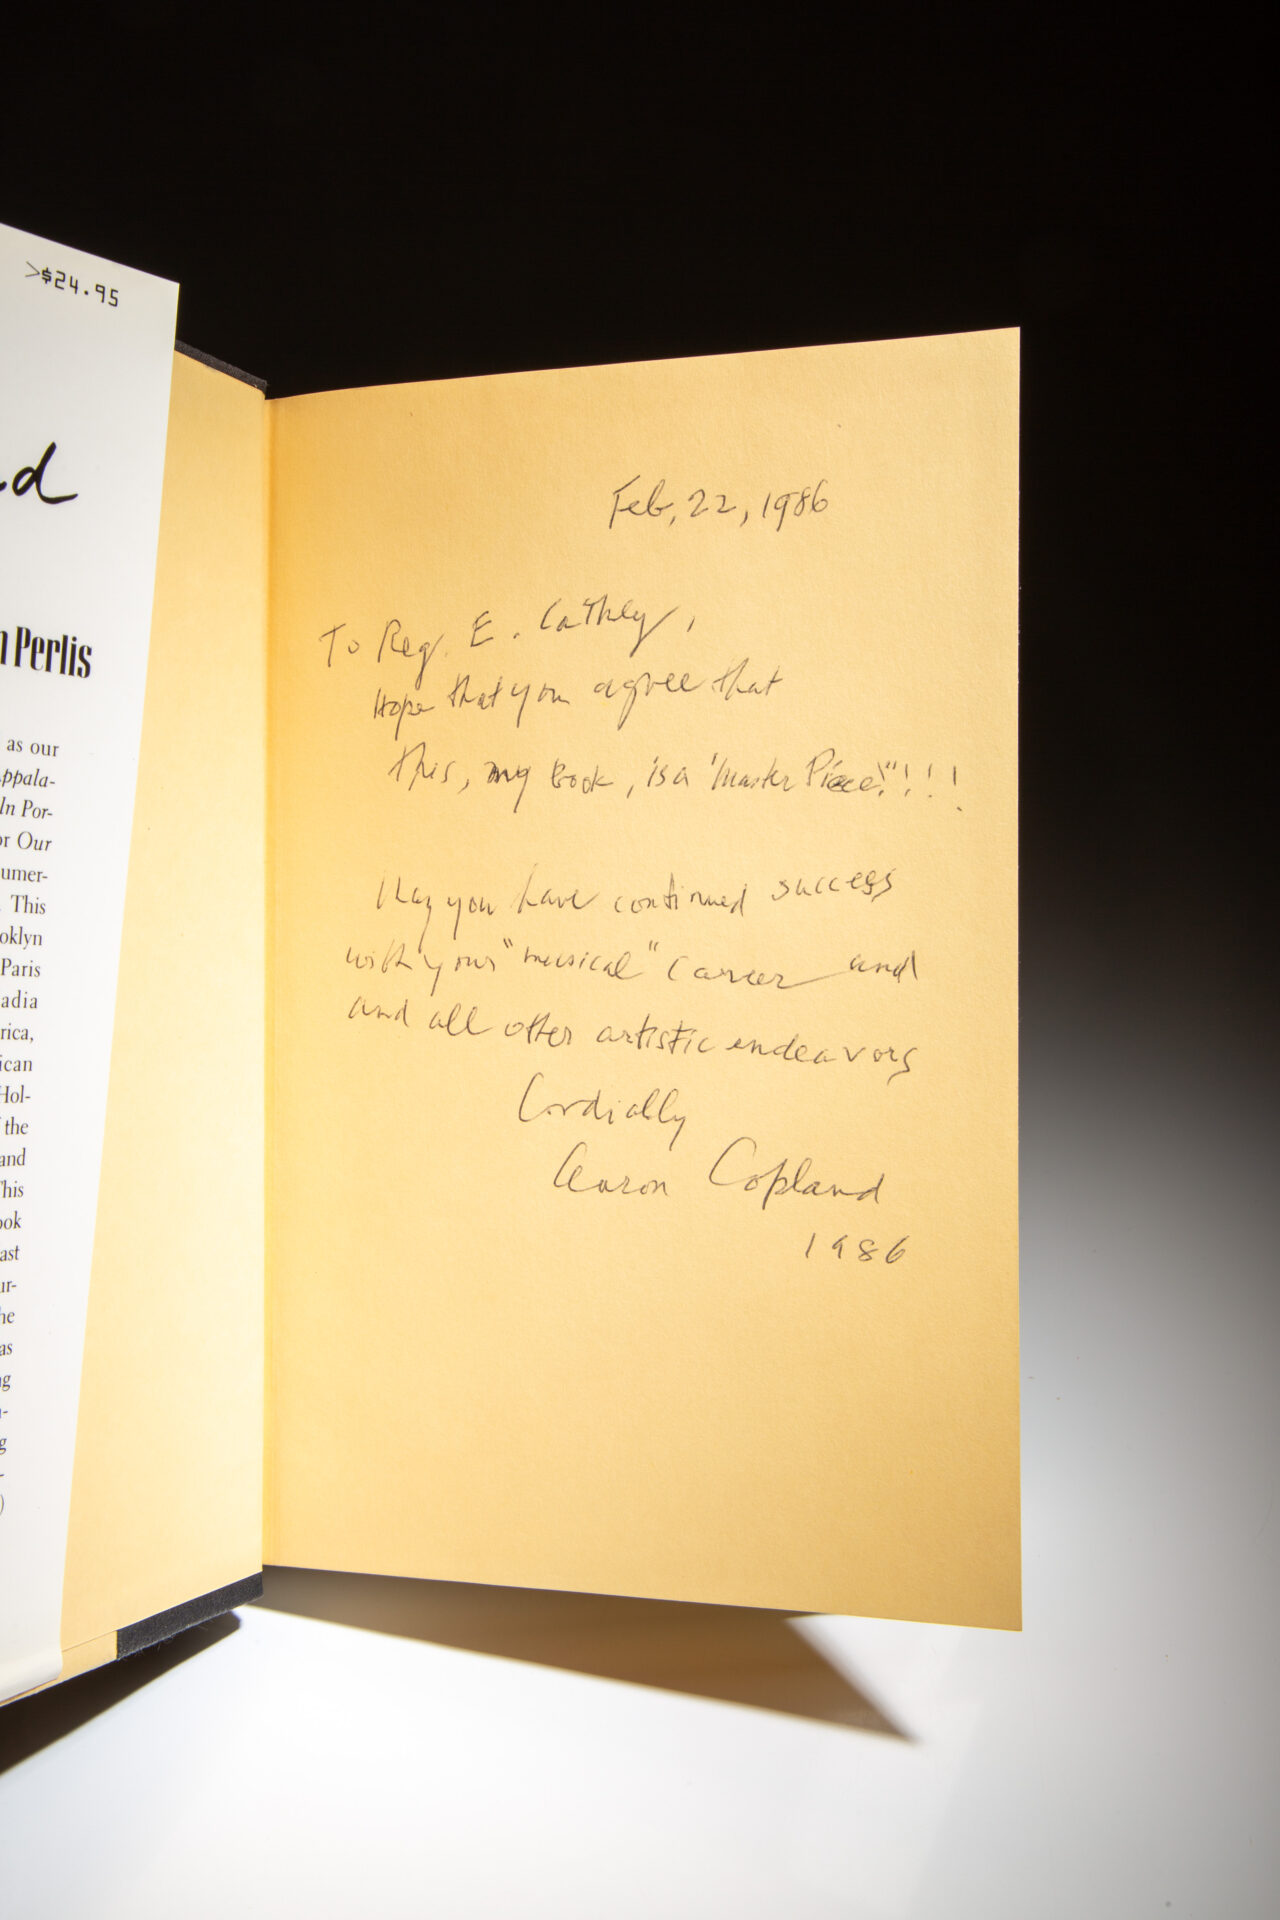 >$24.95
d
Perlis
as our
ppala-
In Por-
or Our
umer-
. This
oklyn
Paris
adia
rica,
ican
Hol-
the
and
This
ook
ast
ur-
he
as
ng
-
g
-
)
Feb, 22, 1986
To Reg. E. Cathey,
Hope that you agree that
this, my book, is a 'Master Piece!"!!!
May you have continued success
with your "musical" career and
and all other artistic endeavors
Cordially
Aaron Copland
1986